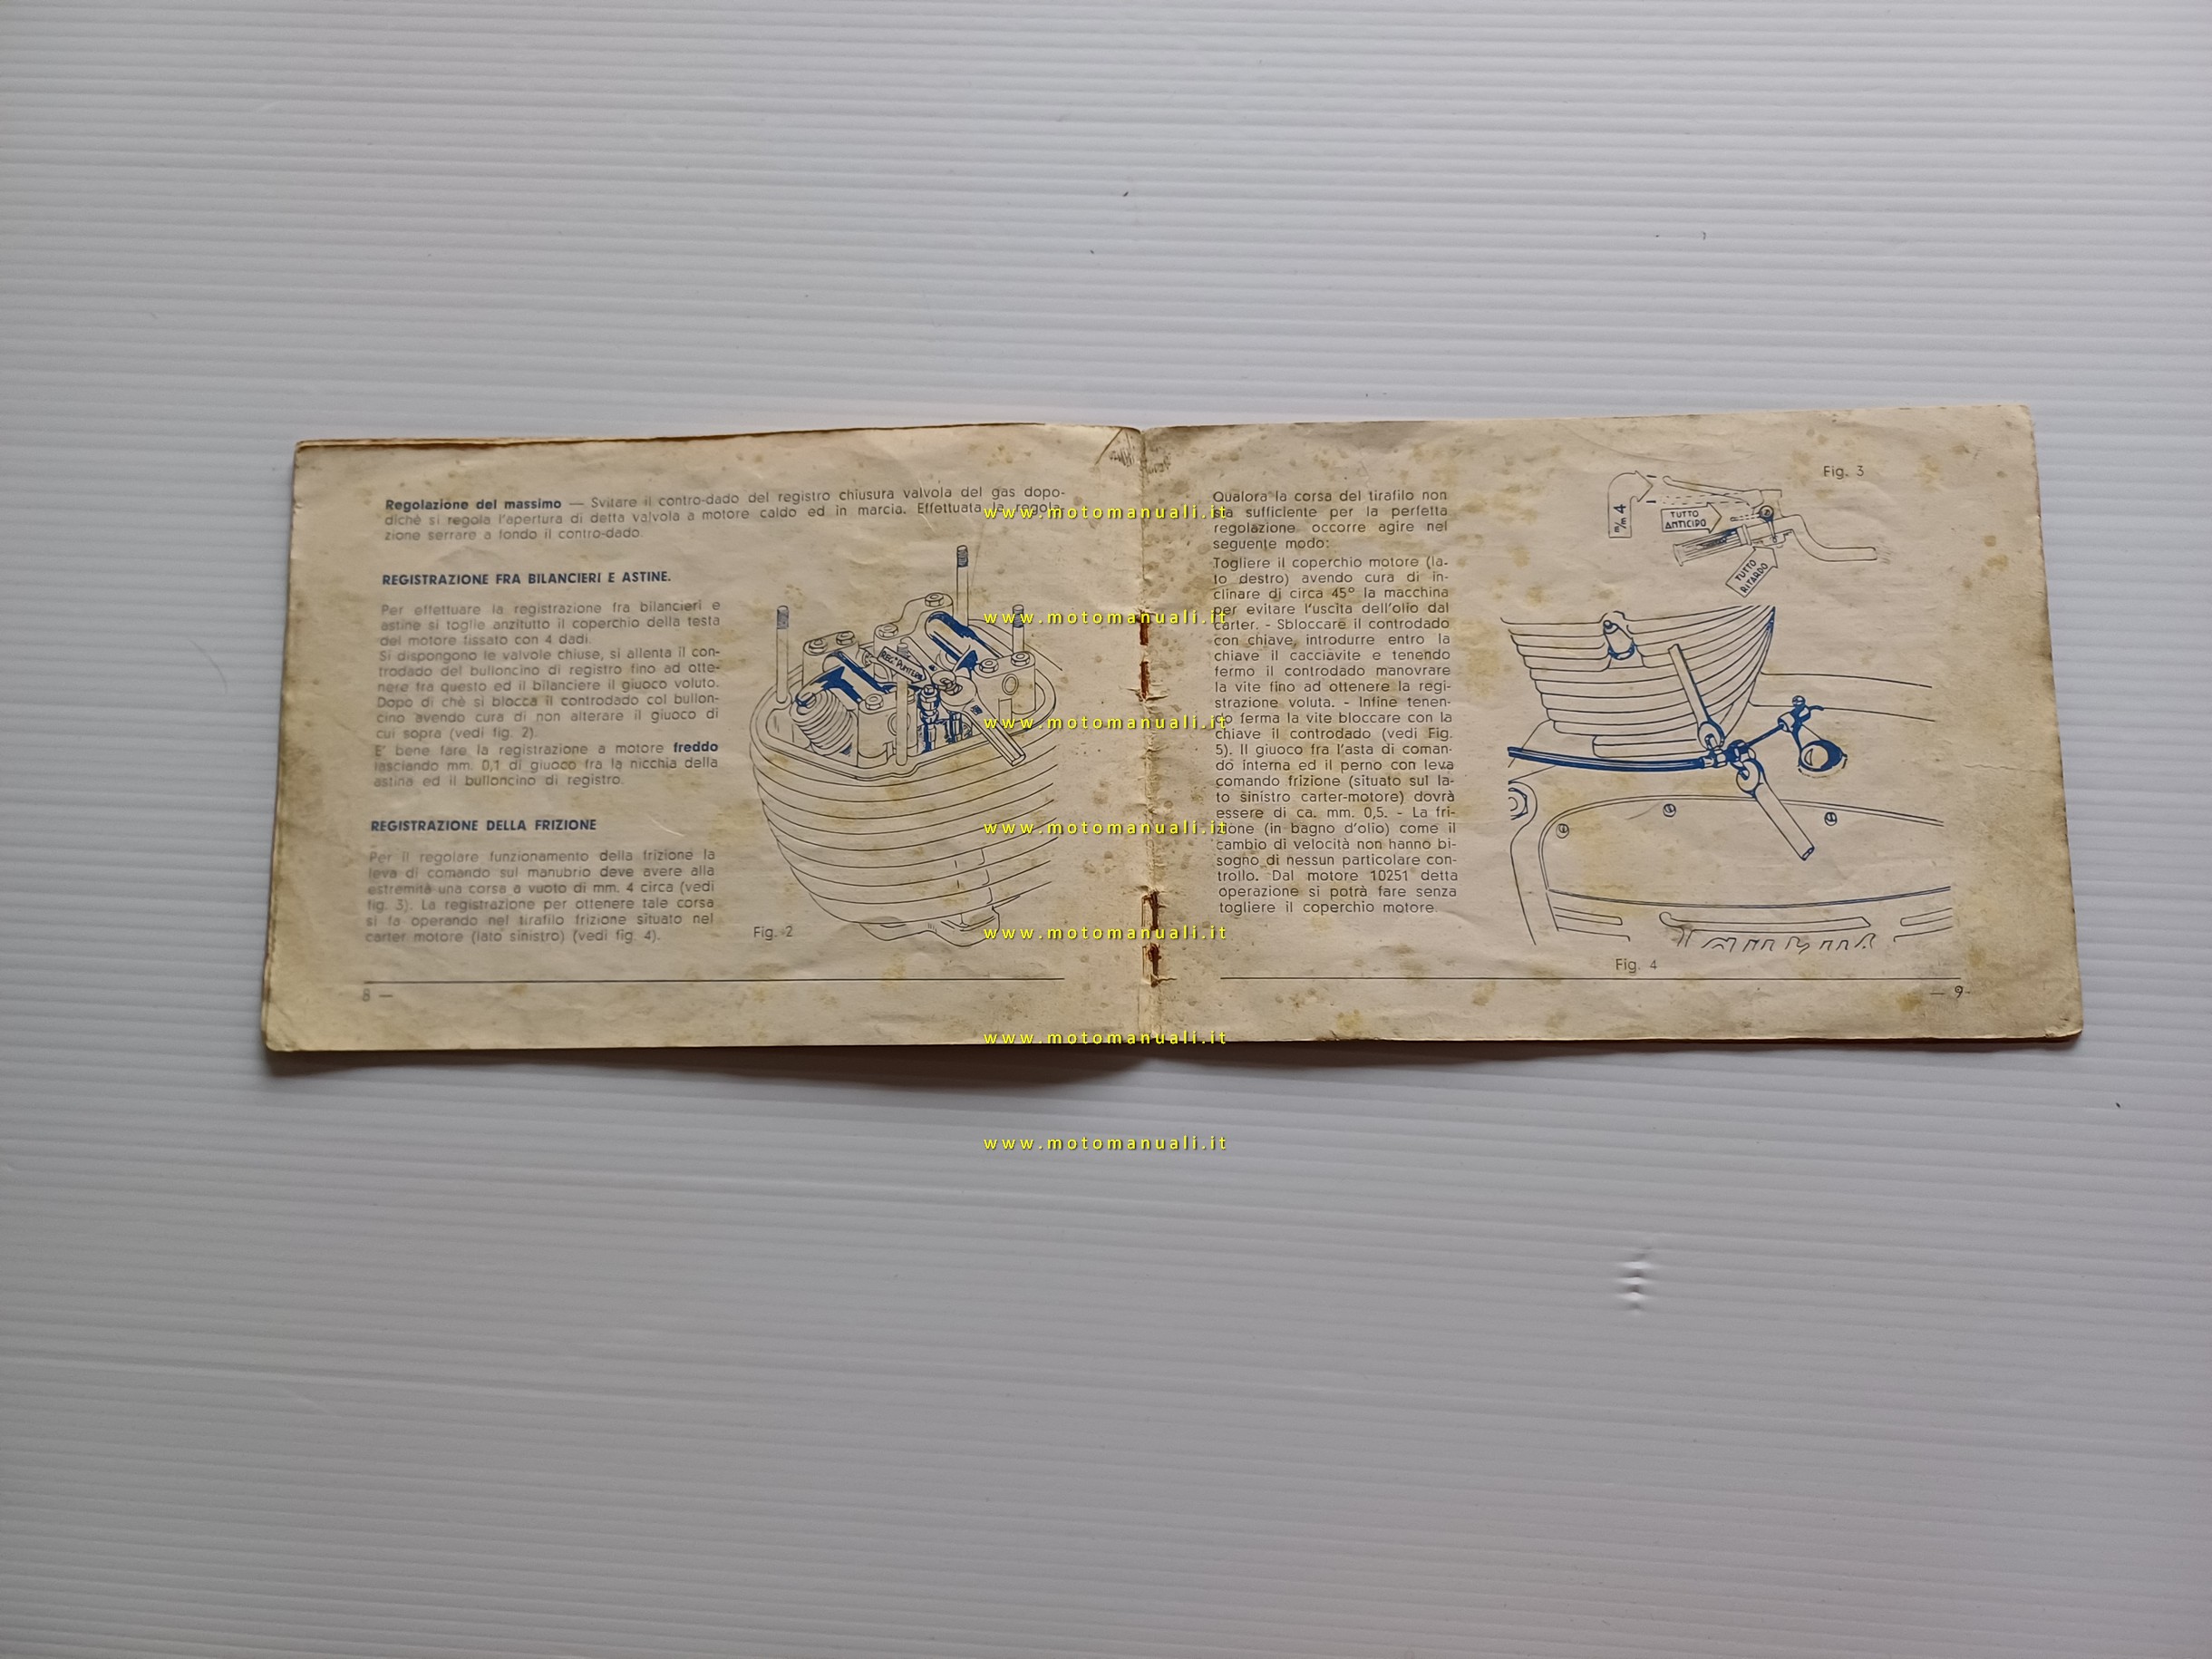 Regolazione del massimo — Svitare il contro-dado del registro chiusura valvola del gas dopo-
dichè si regola l'apertura di detta valvola a motore caldo ed in marcia. Effettuata la regola-
zione serrare a fondo il contro-dado.
REGISTRAZIONE FRA BILANCIERI E ASTINE.
Per effettuare la registrazione fra bilancieri e
astine si toglie anzitutto il coperchio della testa
del motore fissato con 4 dadi.
Si dispongono le valvole chiuse, si allenta il con-
trodado del bulloncino di registro fino ad otte-
nere fra questo ed il bilanciere il giuoco voluto.
Dopo di chè si blocca il controdado col bullon-
cino avendo cura di non alterare il giuoco di
cui sopra (vedi fig. 2).
E' bene fare la registrazione a motore freddo
lasciando mm. 0,1 di giuoco fra la nicchia della
astina ed il bulloncino di registro.
REGISTRAZIONE DELLA FRIZIONE
Per il regolare funzionamento della frizione la
leva di comando sul manubrio deve avere alla
estremità una corsa a vuoto di mm. 4 circa (vedi
fig. 3). La registrazione per ottenere tale corsa
si fa operando nel tirafilo frizione situato nel
carter motore (lato sinistro) (vedi fig. 4).
REG. PUNTERIE
Fig. 2
8 —
Qualora la corsa del tirafilo non
sia sufficiente per la perfetta
regolazione occorre agire nel
seguente modo:
Togliere il coperchio motore (la-
to destro) avendo cura di in-
clinare di circa 45° la macchina
per evitare l'uscita dell'olio dal
carter. - Sbloccare il controdado
con chiave, introdurre entro la
chiave il cacciavite e tenendo
fermo il controdado manovrare
la vite fino ad ottenere la regi-
strazione voluta. - Infine tenen-
do ferma la vite bloccare con la
chiave il controdado (vedi Fig.
5). Il giuoco fra l'asta di coman-
do interna ed il perno con leva
comando frizione (situato sul la-
to sinistro carter-motore) dovrà
essere di ca. mm. 0,5. - La fri-
zione (in bagno d'olio) come il
cambio di velocità non hanno bi-
sogno di nessun particolare con-
trollo. Dal motore 10251 detta
operazione si potrà fare senza
togliere il coperchio motore.
Fig. 3
m/m 4
TUTTO
ANTICIPO
TUTTO
RITARDO
Fig. 4
— 9
www.motomanuali.it
www.motomanuali.it
www.motomanuali.it
www.motomanuali.it
www.motomanuali.it
www.motomanuali.it
www.motomanuali.it